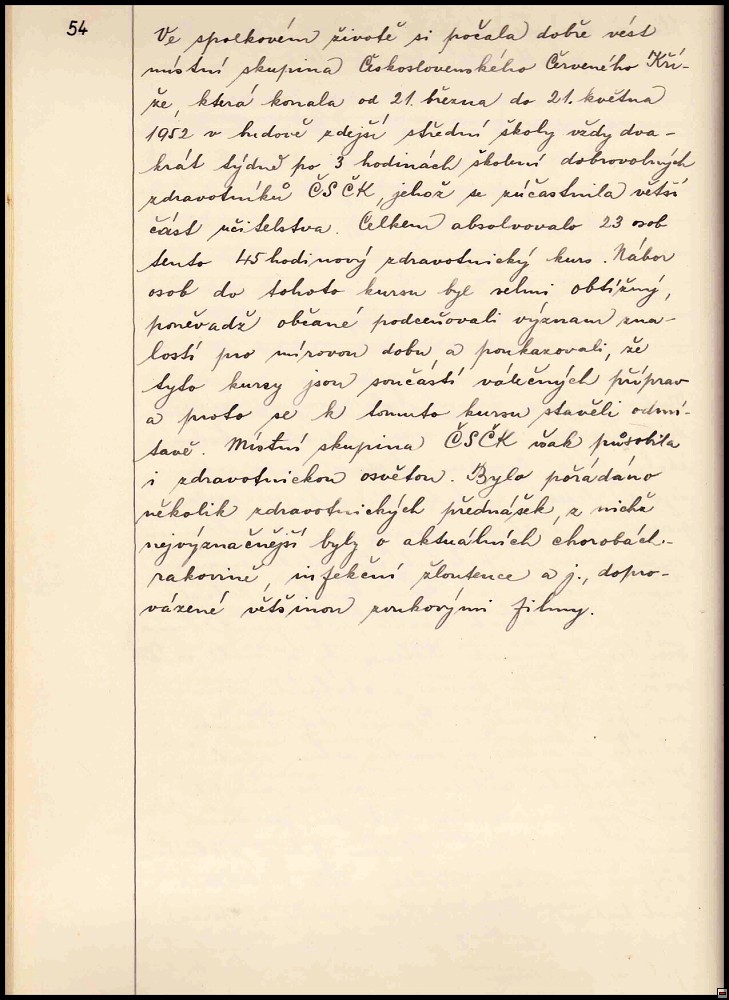 54
Ve spolkovém životě si počala dobře vést
místní skupina Československého Červeného Kří-
že, která konala od 21. března do 21. května
1952 v budově zdejší střední školy vždy dva-
krát týdně po 3 hodinách školení dobrovolných
zdravotníků ČSČK, jehož se zúčastnila větší
část učitelstva. Celkem absolvovalo 23 osob
tento 45 hodinový zdravotnický kurs. Nábor
osob do tohoto kursu byl velmi obtížný,
poněvadž občané podceňovali význam zna-
lostí pro mírovou dobu a poukazovali, že
tyto kursy jsou součástí válečných příprav
a proto se k tomuto kursu stavěli odmí-
tavě. Místní skupina ČSČK však působila
i zdravotnickou osvětou. Bylo pořádáno
několik zdravotnických přednášek, z nichž
nejvýznačnější byly o aktuálních chorobách-
rakovině, infekční žloutence a j., dopro-
vázené většinou zvukovými filmy.